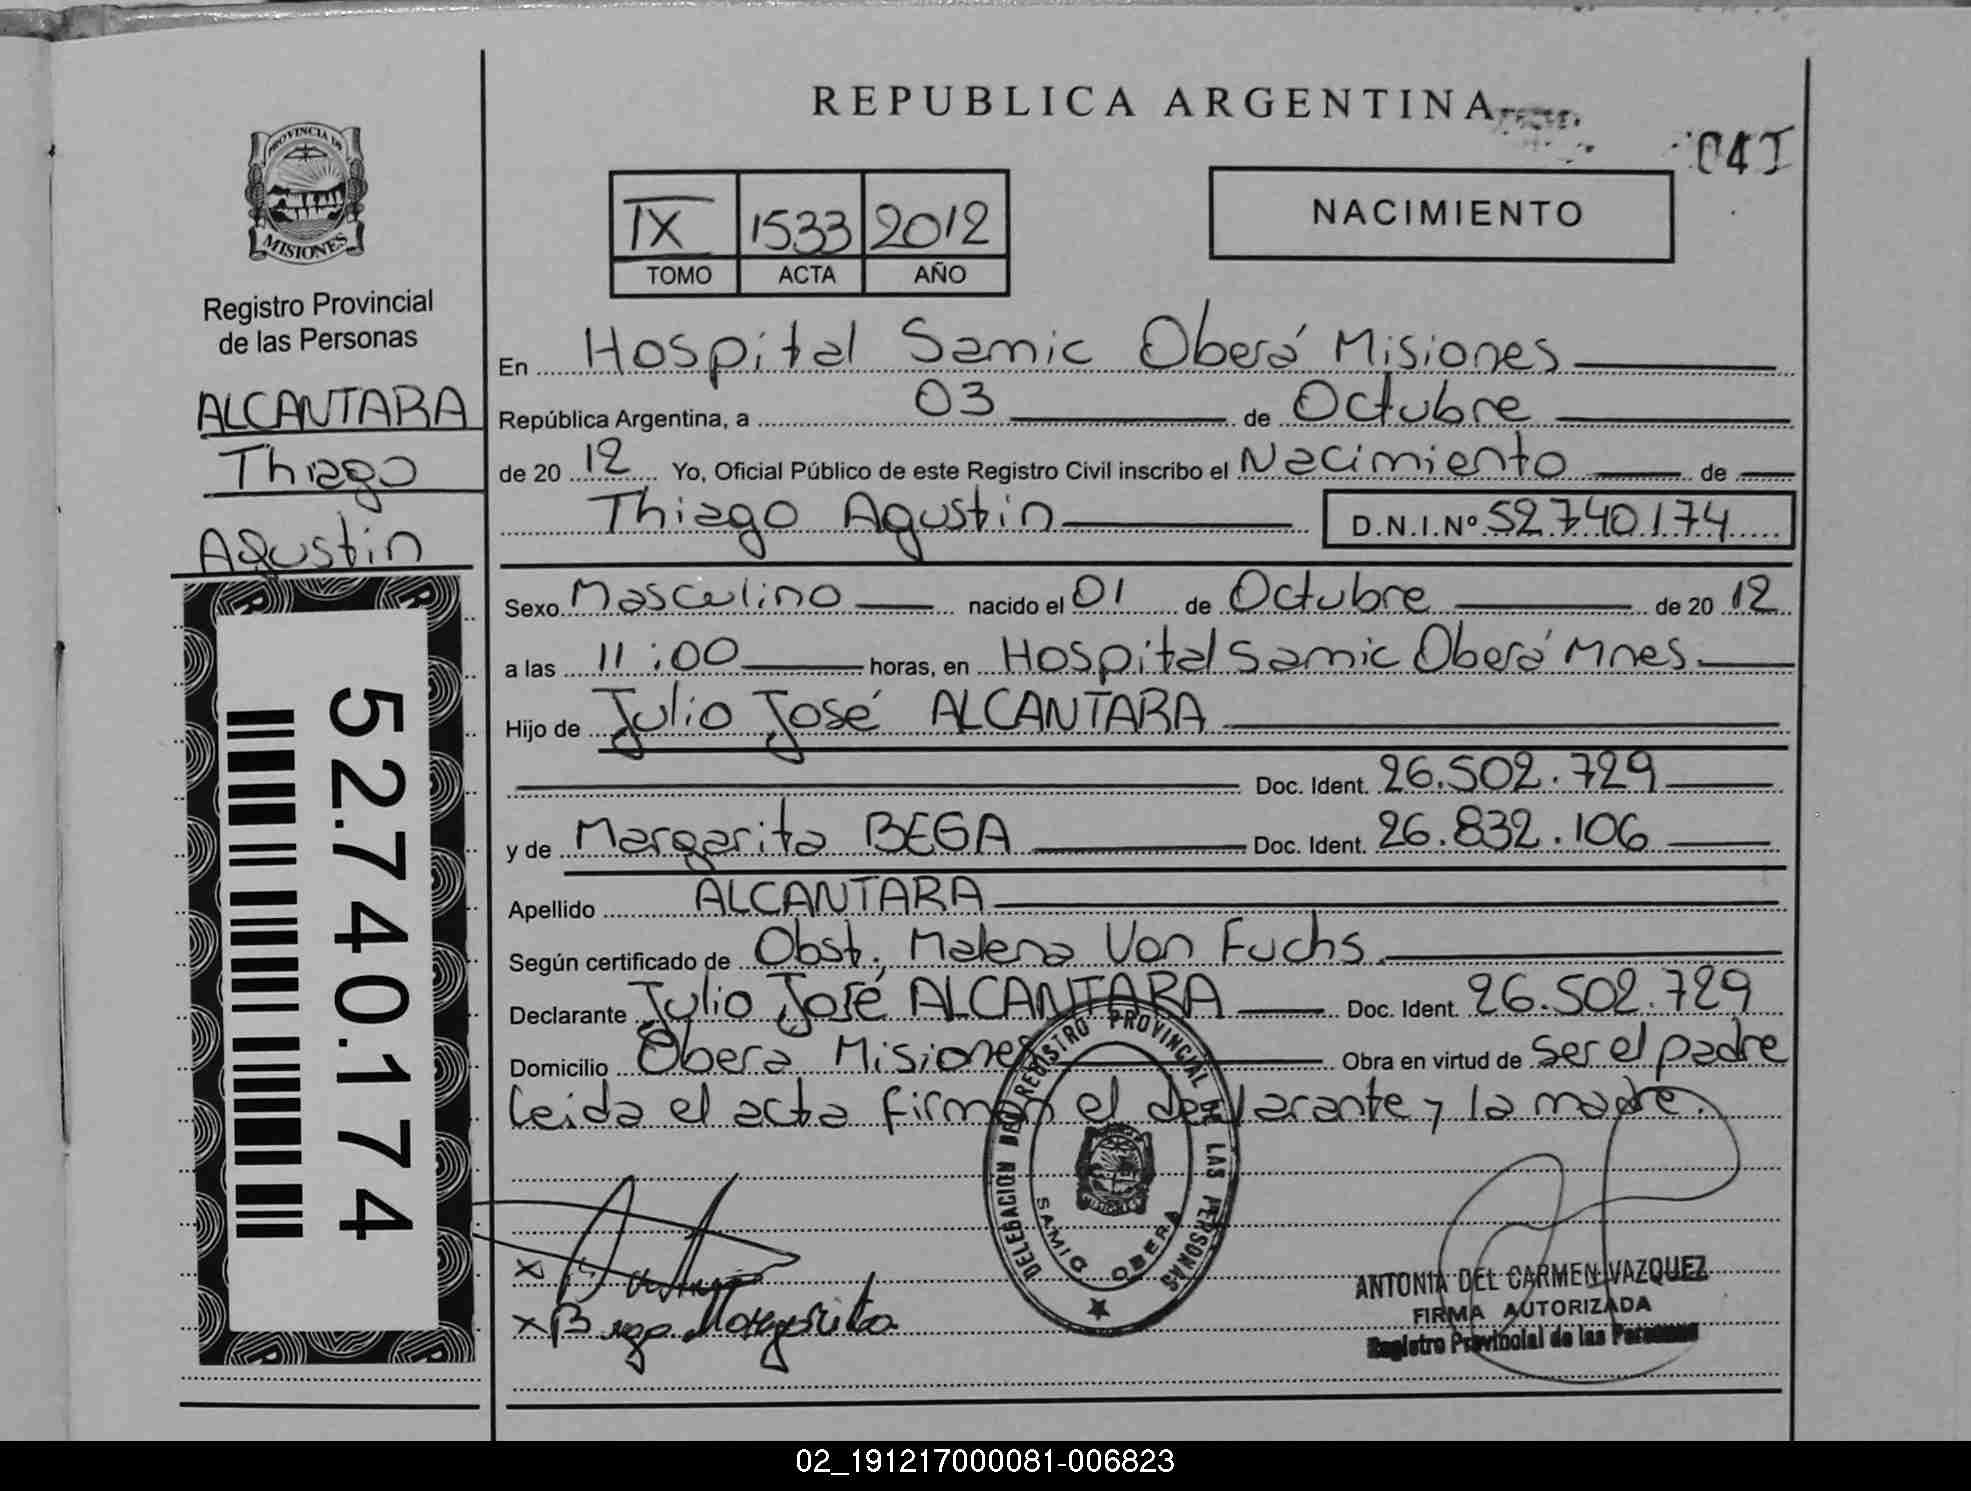 REPUBLICA ARGENTINA
041
PROVINCIA DE
MISIONES
Registro Provincial
de las Personas
ALCANTARA
Thiago
Agustin
52.740.174
IX 1533 2012
TOMO ACTA AÑO
NACIMIENTO
En Hospital Samic Oberá Misiones
República Argentina, a 03 de Octubre
de 20 12 Yo, Oficial Público de este Registro Civil inscribo el Nacimiento de
Thiago Agustin D.N.I.Nº 52.740.174
Sexo Masculino nacido el 01 de Octubre de 20 12
a las 11:00 horas, en Hospital Samic Oberá Mnes.
Hijo de Julio José ALCANTARA
Doc. Ident. 26.502.729
y de Margarita BEGA Doc. Ident. 26.832.106
Apellido ALCANTARA
Según certificado de Obst. Malena Von Fuchs.
Declarante Julio José ALCANTARA Doc. Ident. 26.502.729
Domicilio Obera Misiones Obra en virtud de ser el padre
Leida el acta firman el declarante y la madre.
DELEGACION DEL REGISTRO PROVINCIAL DE LAS PERSONAS
SAMIC OBERA
X
X Bega Margarita
ANTONIA DEL CARMEN VAZQUEZ
FIRMA AUTORIZADA
Registro Provincial de las Personas
02_191217000081-006823